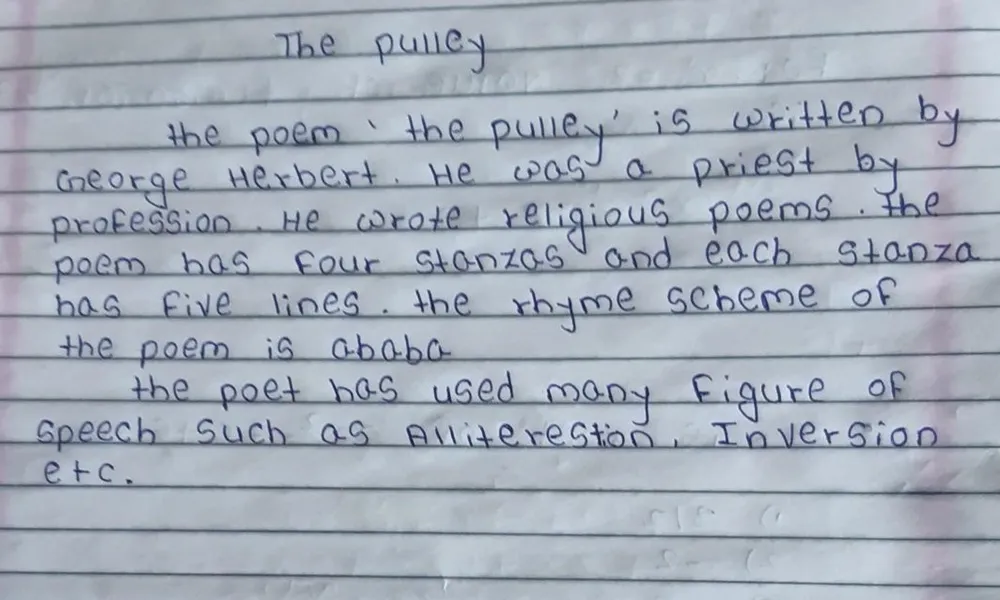 The pulley
the poem ' the pulley' is written by
George Herbert. He was a priest by
profession. He wrote religious poems. the
poem has four stanzas and each stanza
has five lines. the rhyme scheme of
the poem is ababa
the poet has used many figure of
speech such as Alliterestion, Inversion
etc.